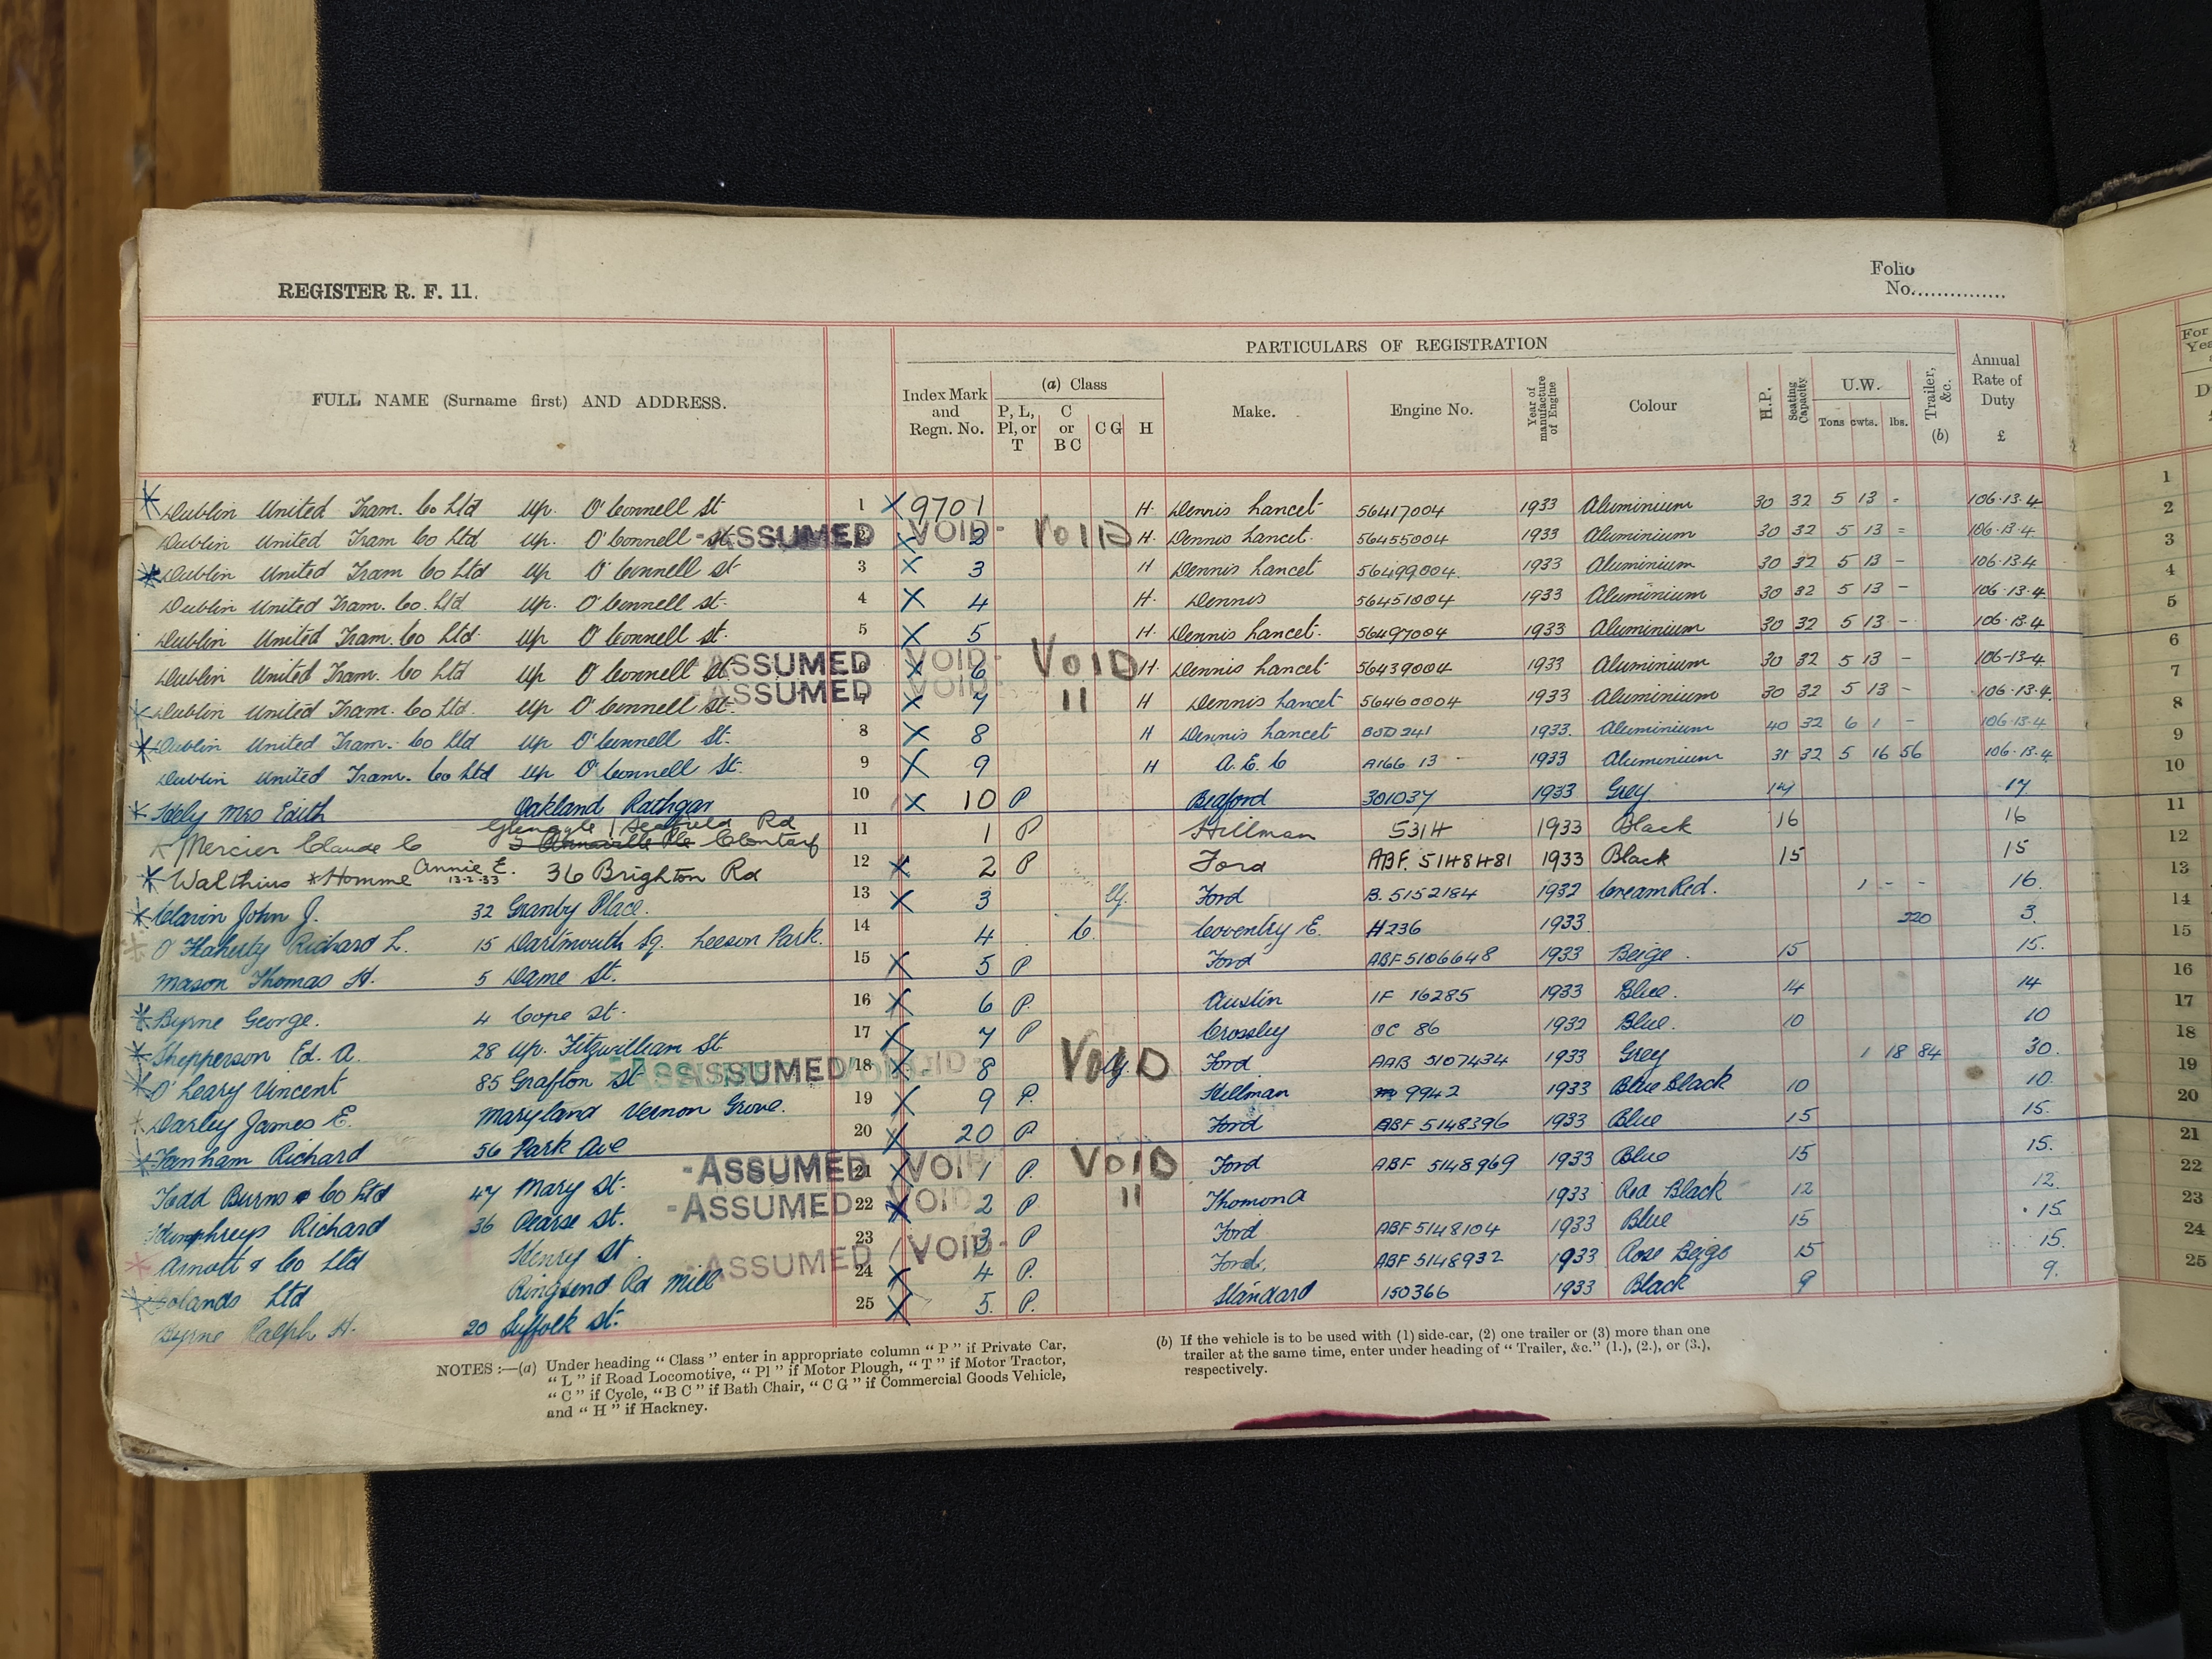 REGISTER R. F. 11.
Folio
No...............
PARTICULARS OF REGISTRATION
FULL NAME (Surname first) AND ADDRESS.
Index Mark and Regn. No.
(a) Class
P, L, Pl, or T
C or B C
C G
H
Make.
Engine No.
Year of manufacture of Engine
Colour
H.P.
Seating Capacity
U.W.
Tons cwts. lbs.
Trailer, &c. (b)
Annual Rate of Duty £
Dublin United Tram. Co Ltd Up. O'Connell St 1 X 9701 H. Dennis Lancet 56417004 1933 Aluminium 30 32 5 13 - 106.13.4
Dublin United Tram Co Ltd Up. O'Connell St. -ASSUMED VOID- VOID 2 X 2 H. Dennis Lancet. 56455004 1933 Aluminium 30 32 5 13 = 106.13.4
Dublin United Tram Co Ltd Up O'Connell St 3 X 3 H Dennis Lancet 56499004. 1933 Aluminium 30 32 5 13 - 106.13.4
Dublin United Tram. Co. Ltd Up. O'Connell St. 4 X 4 H. Dennis 56451004 1933 Aluminium 30 32 5 13 - 106.13.4
Dublin United Tram. Co Ltd. Up O'Connell St. 5 X 5 H. Dennis Lancet. 56497004 1933 Aluminium 30 32 5 13 - 106.13.4
Dublin United Tram. Co Ltd Up O'Connell St. ASSUMED VOID- VOID 6 X 6 H. Dennis Lancet 56439004 1933 Aluminium 30 32 5 13 - 106-13-4
Dublin United Tram. Co Ltd. Up O'Connell St. ASSUMED VOID- 11 7 X 7 H Dennis Lancet 56460004 1933 Aluminium 30 32 5 13 - 106.13.4
Dublin United Tram. Co Ltd Up O'Connell St. 8 X 8 H Dennis Lancet 1933. Aluminium 40 32 6 1 - 106.13.4
Dublin United Tram. Co Ltd Up O'Connell St. 9 X 9 H A.E.C A166 13 1933 Aluminium 31 32 5 16 56 106.13.4
Hely Mrs Edith Oakland Rathgar 10 X 10 P Bedford 301037 1933 Grey 17
Glenagle 1 Seafield Rd
Mercier Claude C Clontarf 11 1 P Hillman 5314 1933 Black 16 16
Walthius Homme Annie E. 13-2-33 36 Brighton Rd 12 X 2 P Ford ABF. 5148481 1933 Black 15 15
John J. 32 Granby Place. 13 X 3 Ford B. 5152184 1932 Cream Red. 1 - - 16.
O'Flaherty Richard L. 15 Dartmouth Sq. Leeson Park. 14 4 C. Coventry E. H236 1933 220 3.
Mason Thomas H. 5 Dame St. 15 X 5 P Ford ABF 5106648 1933 Beige. 15 15.
Byrne George. 4 Cope St. 16 X 6 P. Austin 1F 16285 1933 Blue. 14 14
Shepperson Ed. A. 28 Up. Fitzwilliam St 17 X 7 P Crossley OC 86 1932 Blue. 10 10
O'Leary Vincent 85 Grafton St ASSUMED VOID- VOID 18 X 8 Ford AAB 5107434 1933 Grey 1 18 84 30.
Darley James E. Maryland Vernon Grove. 19 X 9 P. Hillman 9942 1933 Blue Black 10 10.
Fanham Richard 56 Park Ave 20 X 20 P Ford ABF 5148396 1933 Blue 15 15.
Todd Burns & Co Ltd 47 Mary St. -ASSUMED VOID VOID 21 X 1 P. Ford ABF 5148969 1933 Blue 15 15.
Humphreys Richard 36 Pearse St. -ASSUMED VOID 11 22 X 2 P Thomond 1933 Red Black 12 12.
Arnott & Co Ltd Henry St. 23 3 P Ford ABF 5148104 1933 Blue 15 15
Bolands Ltd Ringsend Rd Mill -ASSUMED VOID- 24 X 4 P. Ford. ABF 5148932 1933 Rose Beige 15 15.
Byrne Ralph H. 20 Suffolk St. 25 X 5. P. Standard 150366 1933 Black 9 9.
NOTES :—(a) Under heading “ Class ” enter in appropriate column “ P ” if Private Car,
“ L ” if Road Locomotive, “ Pl ” if Motor Plough, “ T ” if Motor Tractor,
“ C ” if Cycle, “ B C ” if Bath Chair, “ C G ” if Commercial Goods Vehicle,
and “ H ” if Hackney.
(b) If the vehicle is to be used with (1) side-car, (2) one trailer or (3) more than one
trailer at the same time, enter under heading of “ Trailer, &c.” (1.), (2.), or (3.),
respectively.
For
1
2
3
4
5
6
7
8
9
10
11
12
13
14
15
16
17
18
19
20
21
22
23
24
25